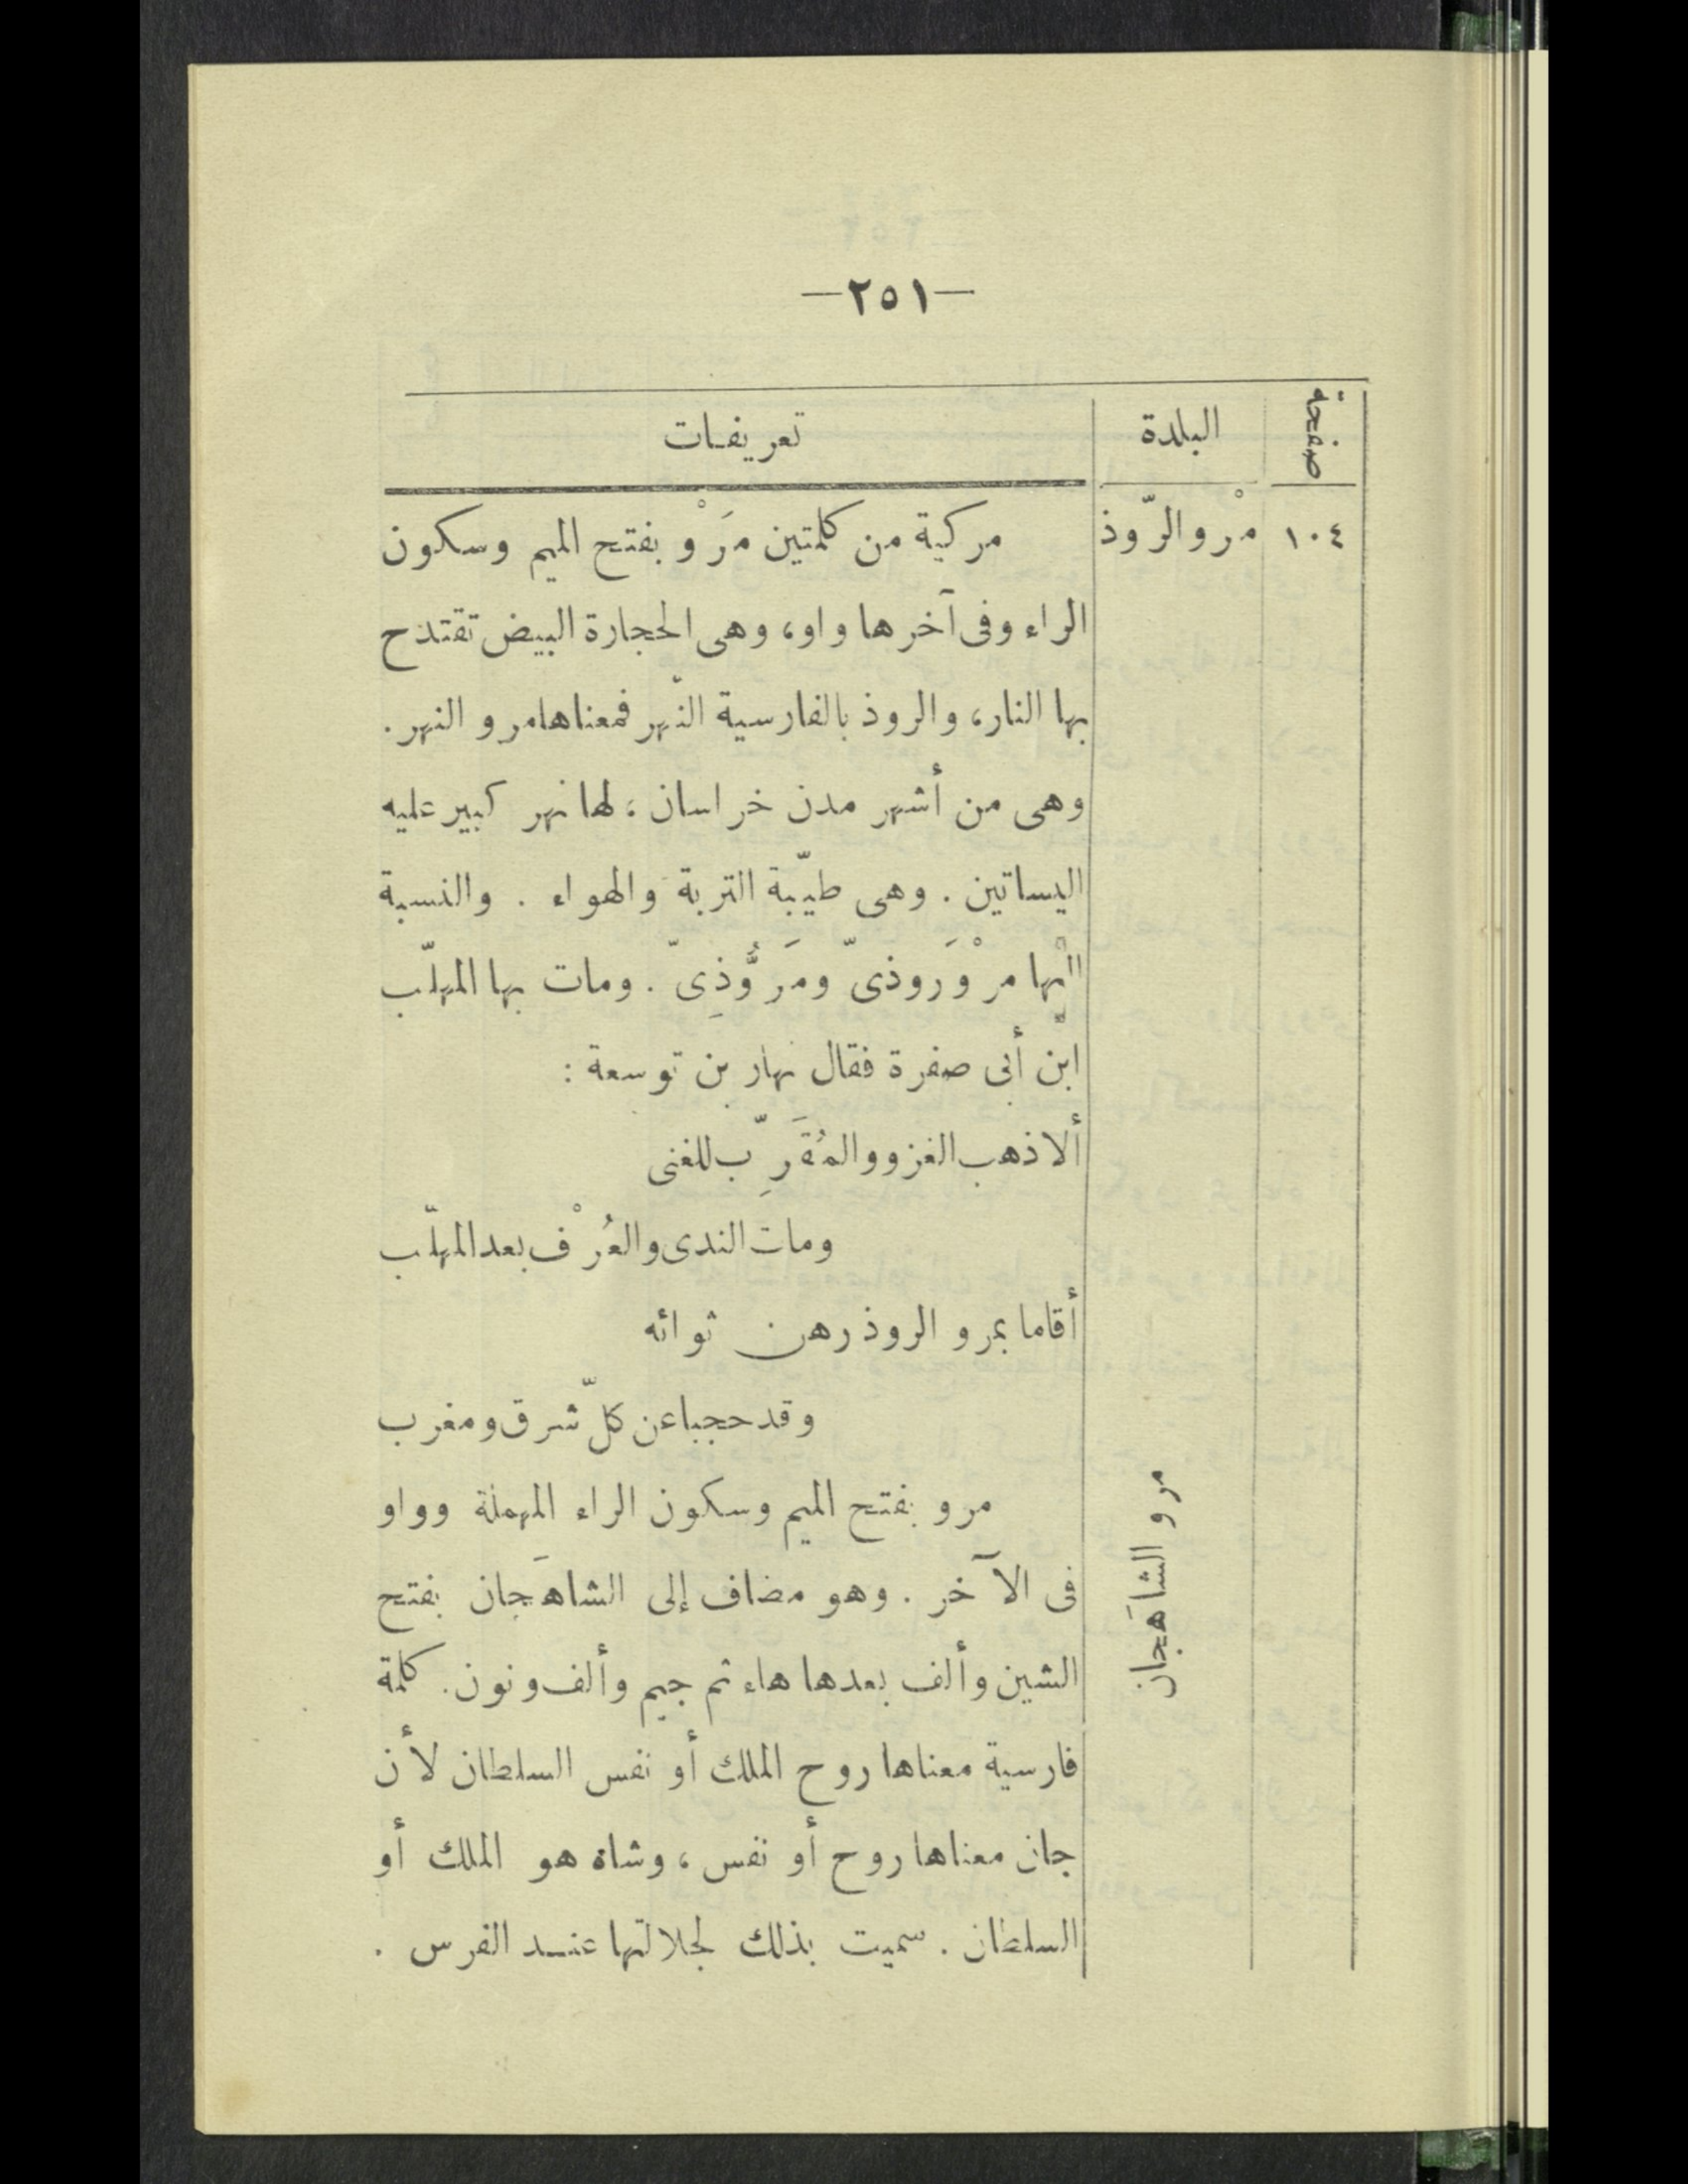 —٢٥١—
صفحة البلدة تعريفات
١٠٤ مرْو الرّوذ مركبة من كلمتين مَرْو بفتح الميم وسكون
الراء وفى آخرها واو، وهى الحجارة البيض تقتدح
بها النار، والروذ بالفارسية النّهر فمعناها مرو النهر.
وهى من أشهر مدن خراسان، لها نهر كبير عليه
البساتين. وهى طيّبة التربة والهواء. والنسبة
إليها مرْوَروذىّ ومَرُّوذِىّ. ومات بها المهلّب
ابن أبى صفرة فقال نهار بن توسعة:
ألا ذهب الغزو والمُقَرِّب للغنى
ومات الندى والعُرْف بعد المهلّب
أقاما بمرو الروذ رهن ثوائه
وقد حجبا عن كلّ شرق ومغرب
مرو الشاهَجان مرو بفتح الميم وسكون الراء المهملة وواو
فى الآخر. وهو مضاف إلى الشاهَجان بفتح
الشين وألف بعدها هاء ثم جيم وألف ونون. كلمة
فارسية معناها روح الملك أو نفس السلطان لأن
جان معناها روح أو نفس، وشاه هو الملك أو
السلطان. سميت بذلك لجلالتها عنـد الفرس.